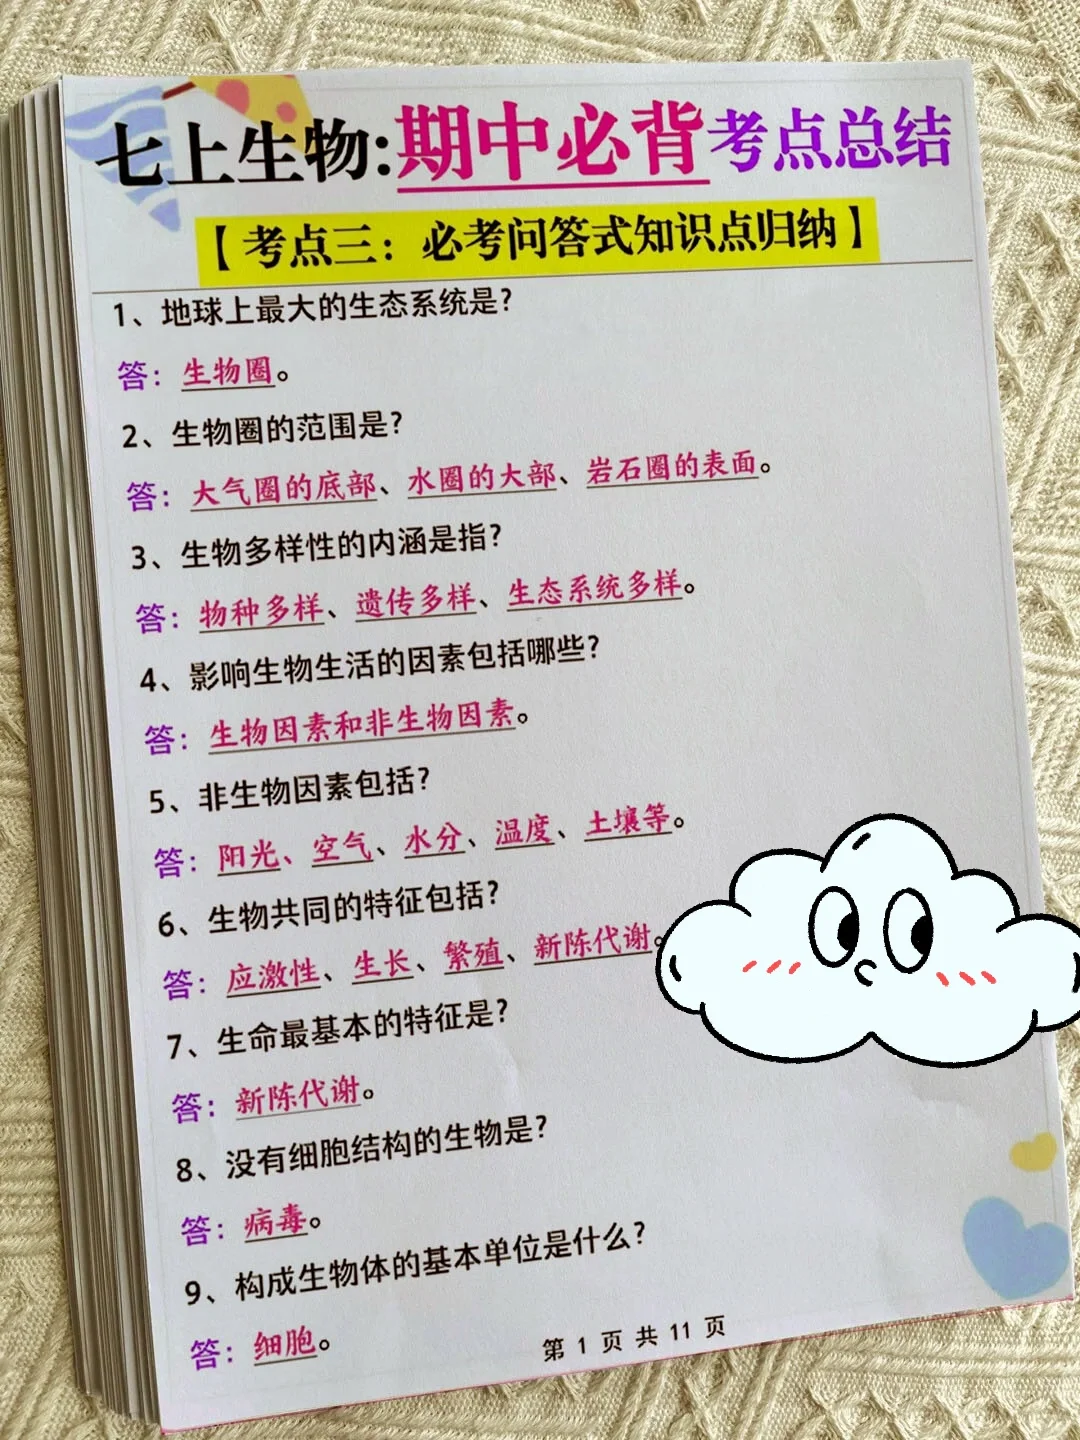 七上生物:期中必背考点总结
【考点三：必考问答式知识点归纳】
1、地球上最大的生态系统是?
答：生物圈。
2、生物圈的范围是?
答：大气圈的底部、水圈的大部、岩石圈的表面。
3、生物多样性的内涵是指?
答：物种多样、遗传多样、生态系统多样。
4、影响生物生活的因素包括哪些?
答：生物因素和非生物因素。
5、非生物因素包括?
答：阳光、空气、水分、温度、土壤等。
6、生物共同的特征包括?
答：应激性、生长、繁殖、新陈代谢。
7、生命最基本的特征是?
答：新陈代谢。
8、没有细胞结构的生物是?
答：病毒。
9、构成生物体的基本单位是什么?
答：细胞。
第 1 页 共 11 页